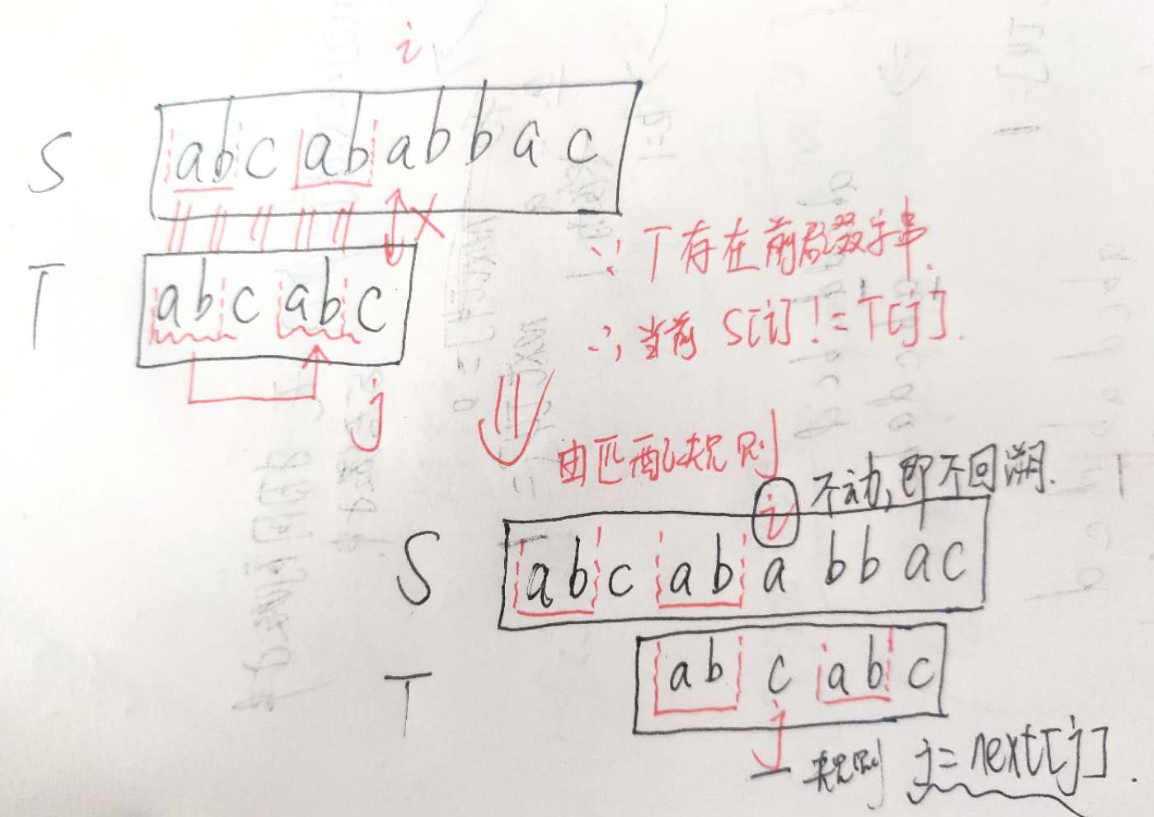 i
S abcabab bac
T abcabc
j
∵ T存在前后缀子串.
∴ 当前 S[i] != T[j].
由匹配规则
i 不动,即不回溯.
S abcababbac
T abcabc
j
规则 j=next[j].